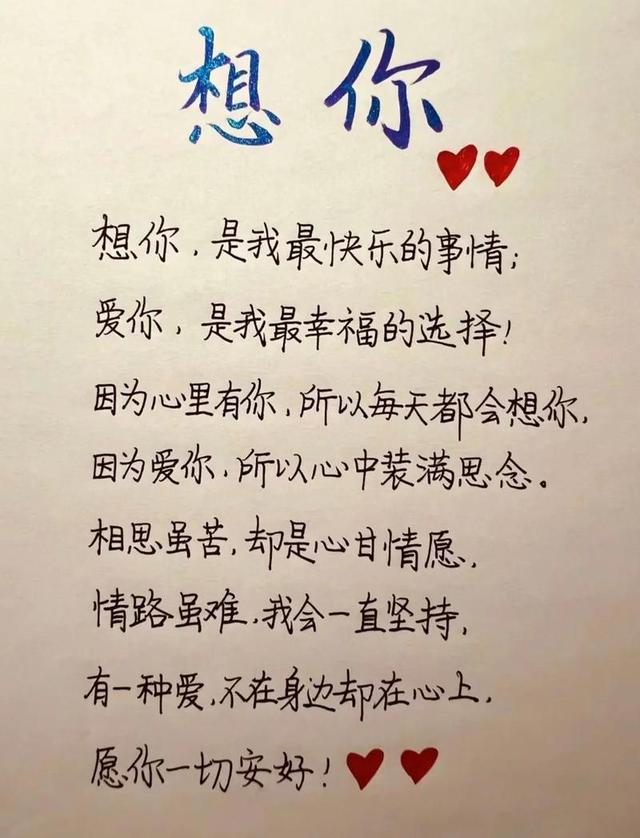 想你
想你，是我最快乐的事情；
爱你，是我最幸福的选择！
因为心里有你，所以每天都会想你，
因为爱你，所以心中装满思念。
相思虽苦，却是心甘情愿，
情路虽难，我会一直坚持，
有一种爱，不在身边却在心上，
愿你一切安好！